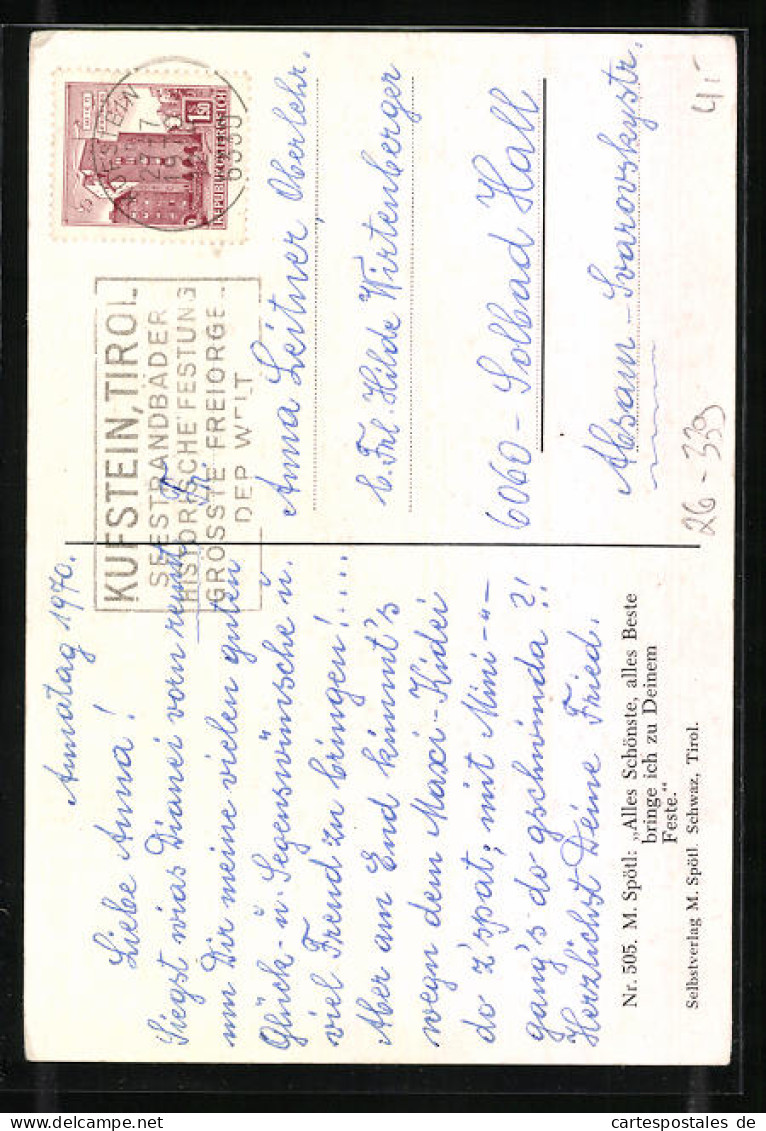 Annatag 1970.
Liebe Anna!
Siegst wias Dianei vorn rennt
um Dir meine vielen guten
Glück- u. Segenswünsche u.
viel Freud zu bringen!....
Aber am End kimmt's
wegn dem Maxi-Kidei
do z'spat, mit Mini-"-
gang's do gschwinda?!
Herzlichst Deine Fried.
Nr. 505. M. Spötl: „Alles Schönste, alles Beste
bringe ich zu Deinem
Feste."
Selbstverlag M. Spötl. Schwaz, Tirol.
1.50
REPUBLIK ÖSTERREICH
KUFSTEIN
29.7.
6330
KUFSTEIN, TIROL
SEESTRANDBÄDER
HISTORISCHE FESTUNG
GRÖSSTE FREIORGEL
DER WELT
Anna Leitner, Oberlehr.
b. Frl. Hilde Wirtenberger
6060 - Solbad Hall
Absam-Svarovskystr.
4,-
26-339
cartespostales de